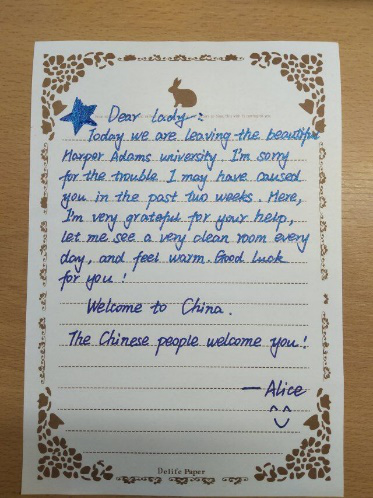 Dear lady~:
Today we are leaving the beautiful
Harper Adams university. I'm sorry
for the trouble I may have caused
you in the past two weeks. Here,
I'm very grateful for your help,
let me see a very clean room every
day, and feel warm. Good luck
for you!
Welcome to China.
The Chinese people welcome you!
— Alice
^^
Delife Paper